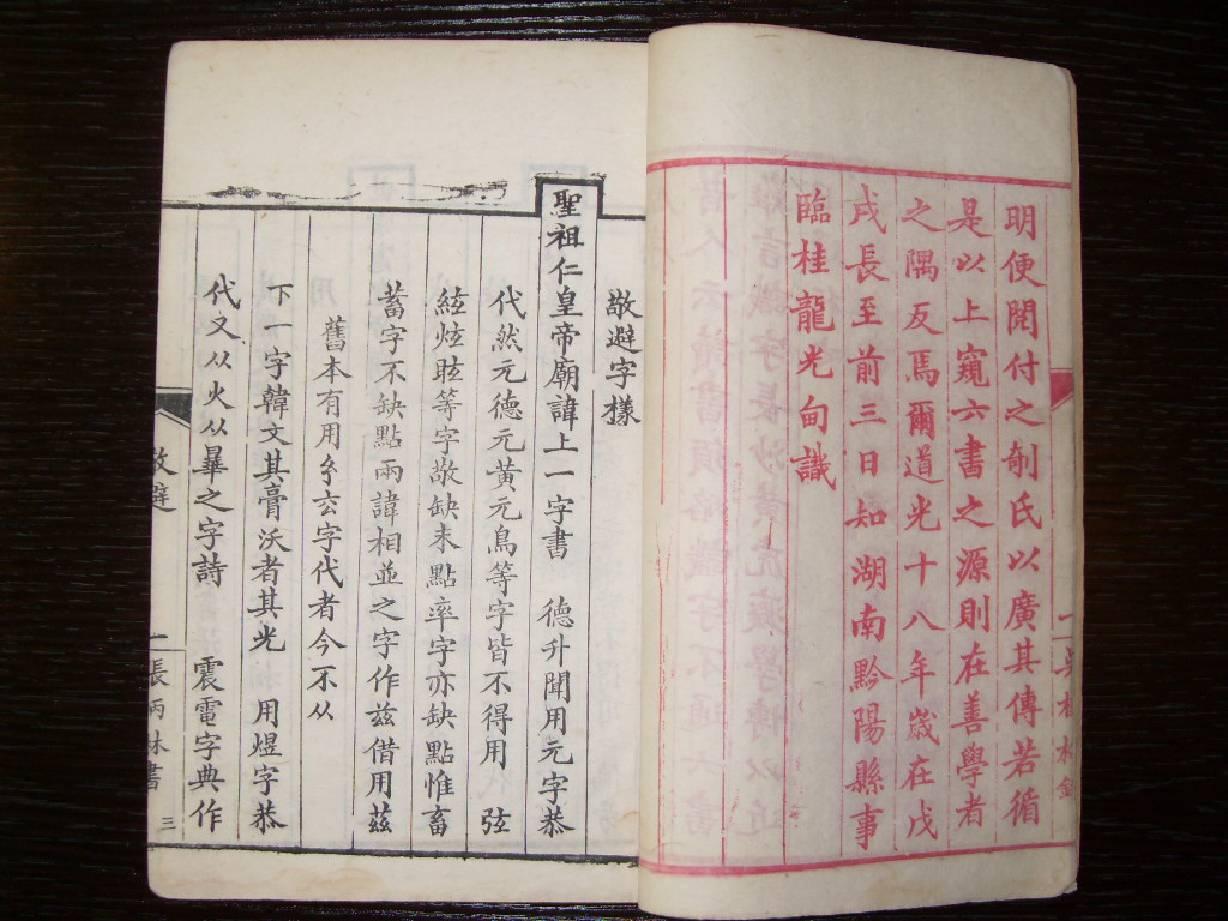 明便閱付之剞氏以廣其傳若循
是以上窺六書之源則在善學者
之隅反焉爾道光十八年歲在戊
戌長至前三日知湖南黔陽縣事
臨桂龍光甸識
敬避字樣
聖祖仁皇帝廟諱上一字書 德升聞用元字恭
代然元德元黃元鳥等字皆不得用 弦
絃炫眩等字敬缺末點率字亦缺點惟畜
蓄字不缺點兩諱相並之字作兹借用茲
舊本有用𤣥字代者今不从
下一字韓文其膏沃者其光 用煜字恭
代文从火从畢之字詩 震電字典作
敬避
二
張丙林書
三